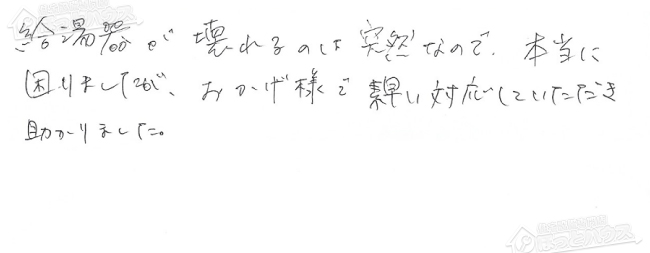 給湯器が壊れるのは突然なので、本当に
困りましたが、おかげ様で素早い対応していただき
助かりました。